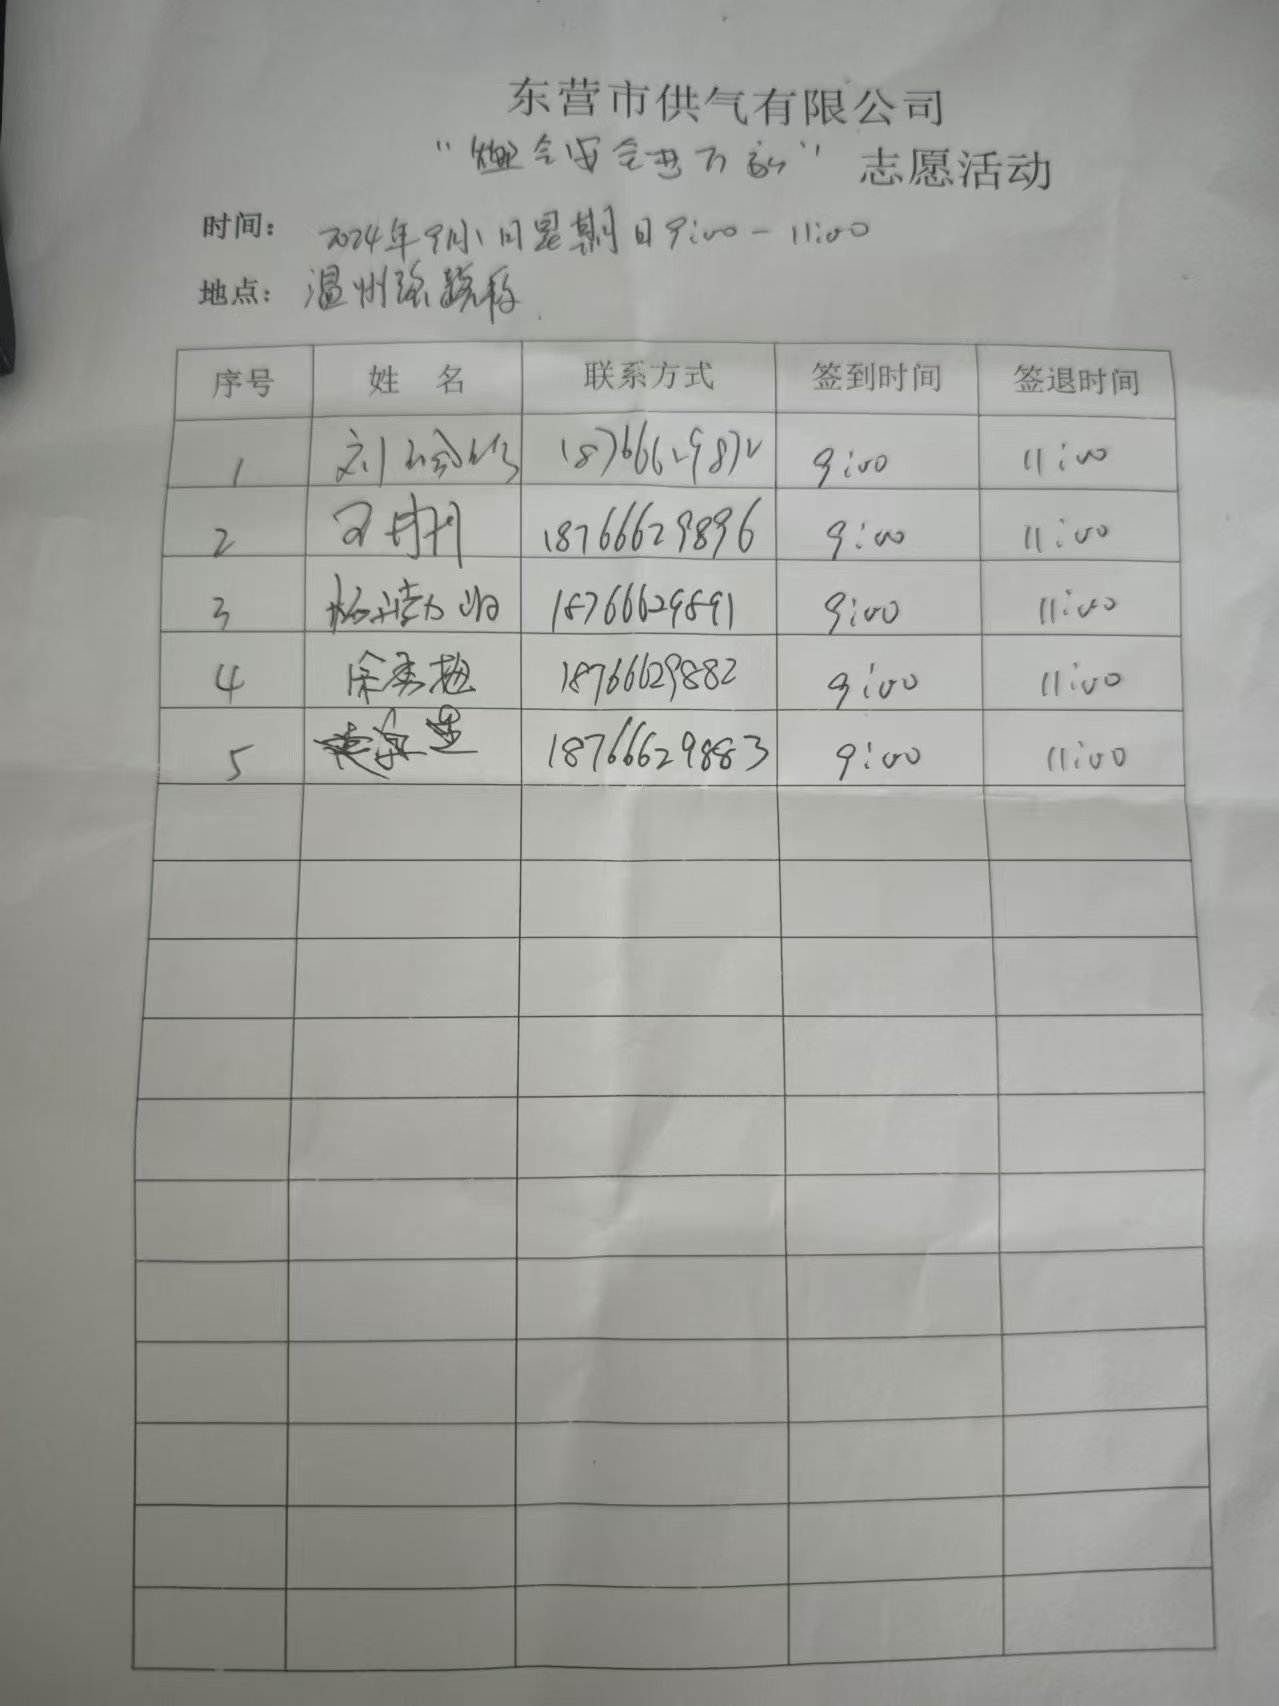 东营市供气有限公司
“燃气安全进万家”志愿活动
时间： 2024年9月1日星期日9:00-11:00
地点： 温州
序号 姓 名 联系方式 签到时间 签退时间
1 刘 18766629872 9:00 11:00
2 18766629896 9:00 11:00
3 18766629891 9:00 11:00
4 徐秀艳 18766629882 9:00 11:00
5 18766629883 9:00 11:00